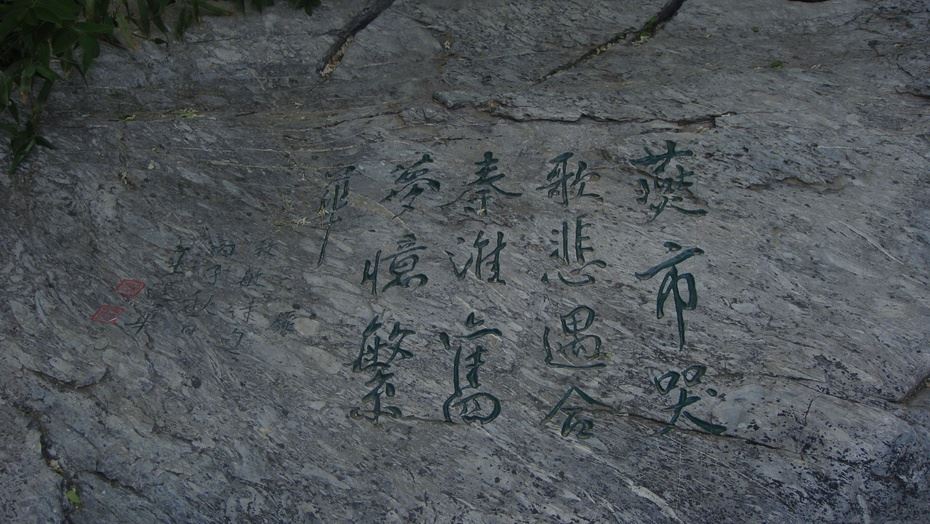 燕市哭
歌悲遇合
秦淮舊
夢憶繁
華